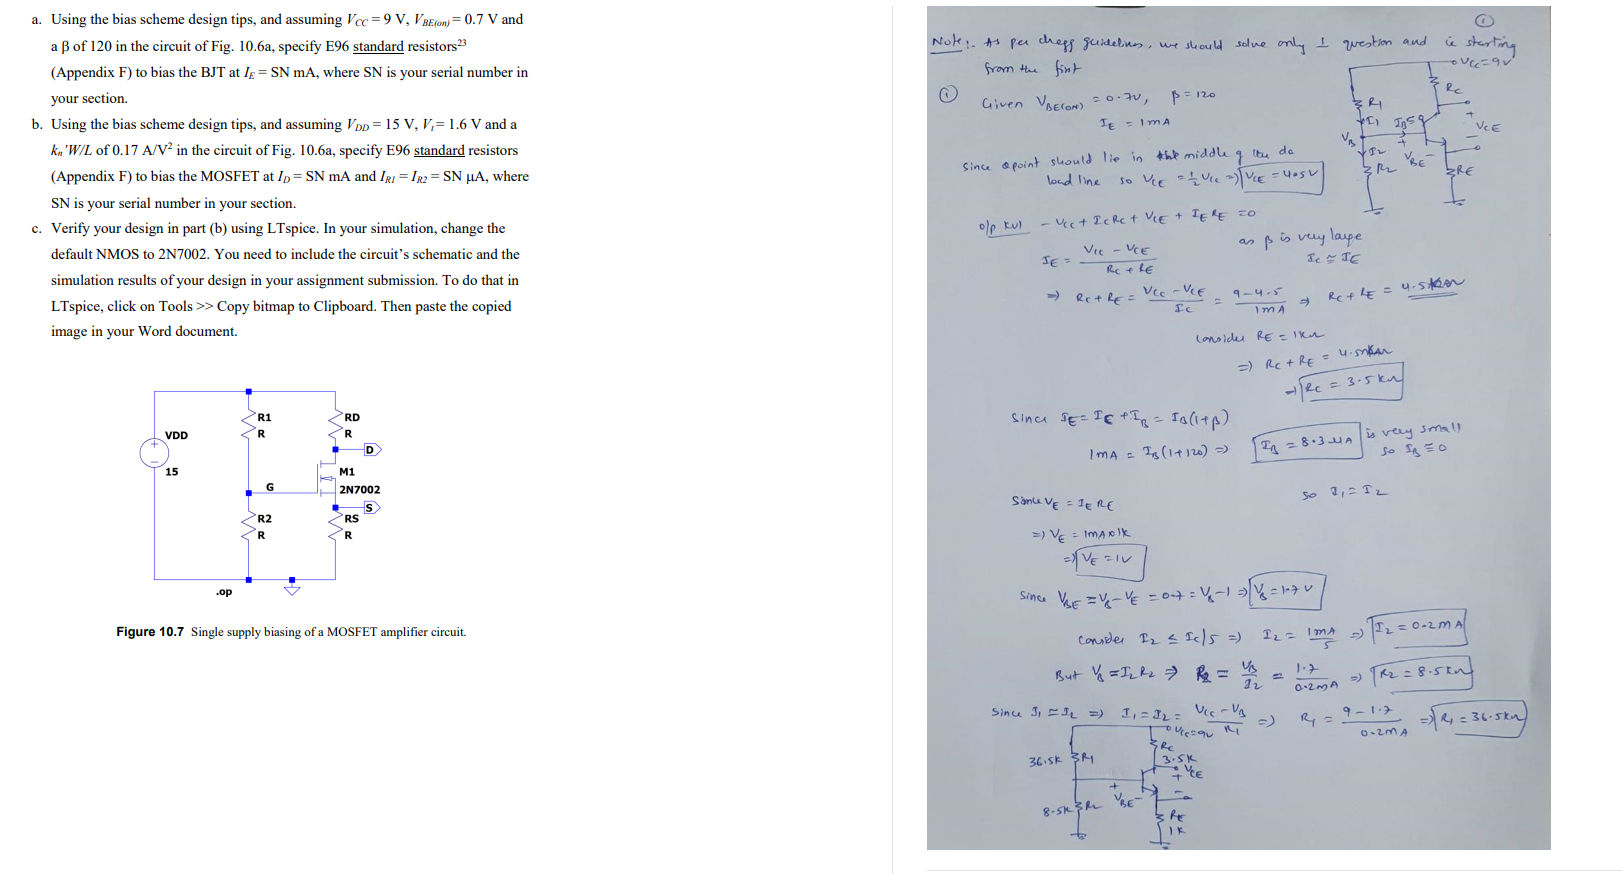 a. Using the bias scheme design tips, and assuming VCC = 9 V, VBE(on) = 0.7 V and
a β of 120 in the circuit of Fig. 10.6a, specify E96 standard resistors23
(Appendix F) to bias the BJT at IE = SN mA, where SN is your serial number in
your section.
b. Using the bias scheme design tips, and assuming VDD = 15 V, Vt = 1.6 V and a
kn'W/L of 0.17 A/V2 in the circuit of Fig. 10.6a, specify E96 standard resistors
(Appendix F) to bias the MOSFET at ID = SN mA and IR1 = IR2 = SN μA, where
SN is your serial number in your section.
c. Verify your design in part (b) using LTspice. In your simulation, change the
default NMOS to 2N7002. You need to include the circuit's schematic and the
simulation results of your design in your assignment submission. To do that in
LTspice, click on Tools >> Copy bitmap to Clipboard. Then paste the copied
image in your Word document.
R1
R
RD
R
VDD
15
D
M1
2N7002
G
S
R2
R
RS
R
.op
Figure 10.7 Single supply biasing of a MOSFET amplifier circuit.
1
Note:- As per chegg guidelines, we should solve only 1 question and ie starting
from the first
1 Given VBE(ON) = 0.7V, β = 120
IE = 1mA
VCC=9V
RC
R1
I1 IB
VB
VCE
I2
R2 VBE
RE
Since Qpoint should lie in the middle of the dc
load line so VCE = 1/2 VCC ⇒ VCE = 4.5V
o/p KVL - VCC + ICRC + VCE + IERE = 0
IE = VCC - VCE / RC + RE
as β is very large
IC ≅ IE
⇒ RC + RE = VCC - VCE / IC = 9-4.5 / 1mA ⇒ RC + RE = 4.5kΩ
Consider RE = 1kΩ
⇒ RC + RE = 4.5kΩ
⇒ RC = 3.5kΩ
Since IE = IC + IB = IB(1+β)
1mA = IB(1+120) ⇒ IB = 8.3μA is very small
so IB ≅ 0
so I1 = I2
Since VE = IERE
⇒ VE = 1mA×1K
⇒ VE = 1V
Since VBE = VB - VE = 0.7 = VB - 1 ⇒ VB = 1.7V
Consider I2 ≤ IC/5 ⇒ I2 = 1mA / 5 ⇒ I2 = 0.2mA
But VB = I2R2 ⇒ R2 = VB / I2 = 1.7 / 0.2mA ⇒ R2 = 8.5kΩ
Since I1 ≅ I2 ⇒ I1 = I2 = VCC - VB / R1 ⇒ R1 = 9-1.7 / 0.2mA ⇒ R1 = 36.5kΩ
VCC=9V
RC
3.5K
36.5K R1
VCE
8.5K R2
VBE
RE
1K